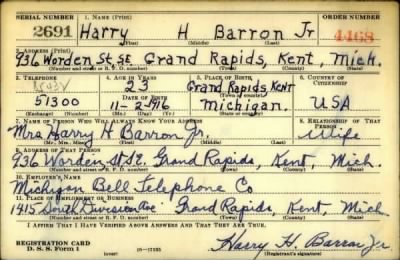 SERIAL NUMBER 1. NAME (Print) ORDER NUMBER
2691 Harry H Barron Jr 4468
(First) (Middle) (Last)
2. ADDRESS (Print)
936 Worden St. SE. Grand Rapids, Kent, Mich.
(Number and street or R. F. D. number) (Town) (County) (State)
3. TELEPHONE 4. AGE IN YEARS 5. PLACE OF BIRTH 6. COUNTRY OF CITIZENSHIP
23 Grand Rapids, Kent
(Town or county)
51300 11-2-1916 Michigan. USA
7. NAME OF PERSON WHO WILL ALWAYS KNOW YOUR ADDRESS 8. RELATIONSHIP OF THAT PERSON
Mrs Harry H. Barron Jr. Wife
(Mr., Mrs., Miss) (First) (Middle) (Last)
9. ADDRESS OF THAT PERSON
936 Worden St SE. Grand Rapids, Kent, Mich.
(Number and street or R. F. D. number) (Town) (County) (State)
10. EMPLOYER'S NAME
Michigan Bell Telephone Co
11. PLACE OF EMPLOYMENT OR BUSINESS
1415 South Division Ave Grand Rapids, Kent, Mich
(Number and street or R. F. D. number) (Town) (County) (State)
I AFFIRM THAT I HAVE VERIFIED ABOVE ANSWERS AND THAT THEY ARE TRUE.
REGISTRATION CARD
D. S. S. Form 1 (over) Harry H. Barron Jr
(Registrant's signature)